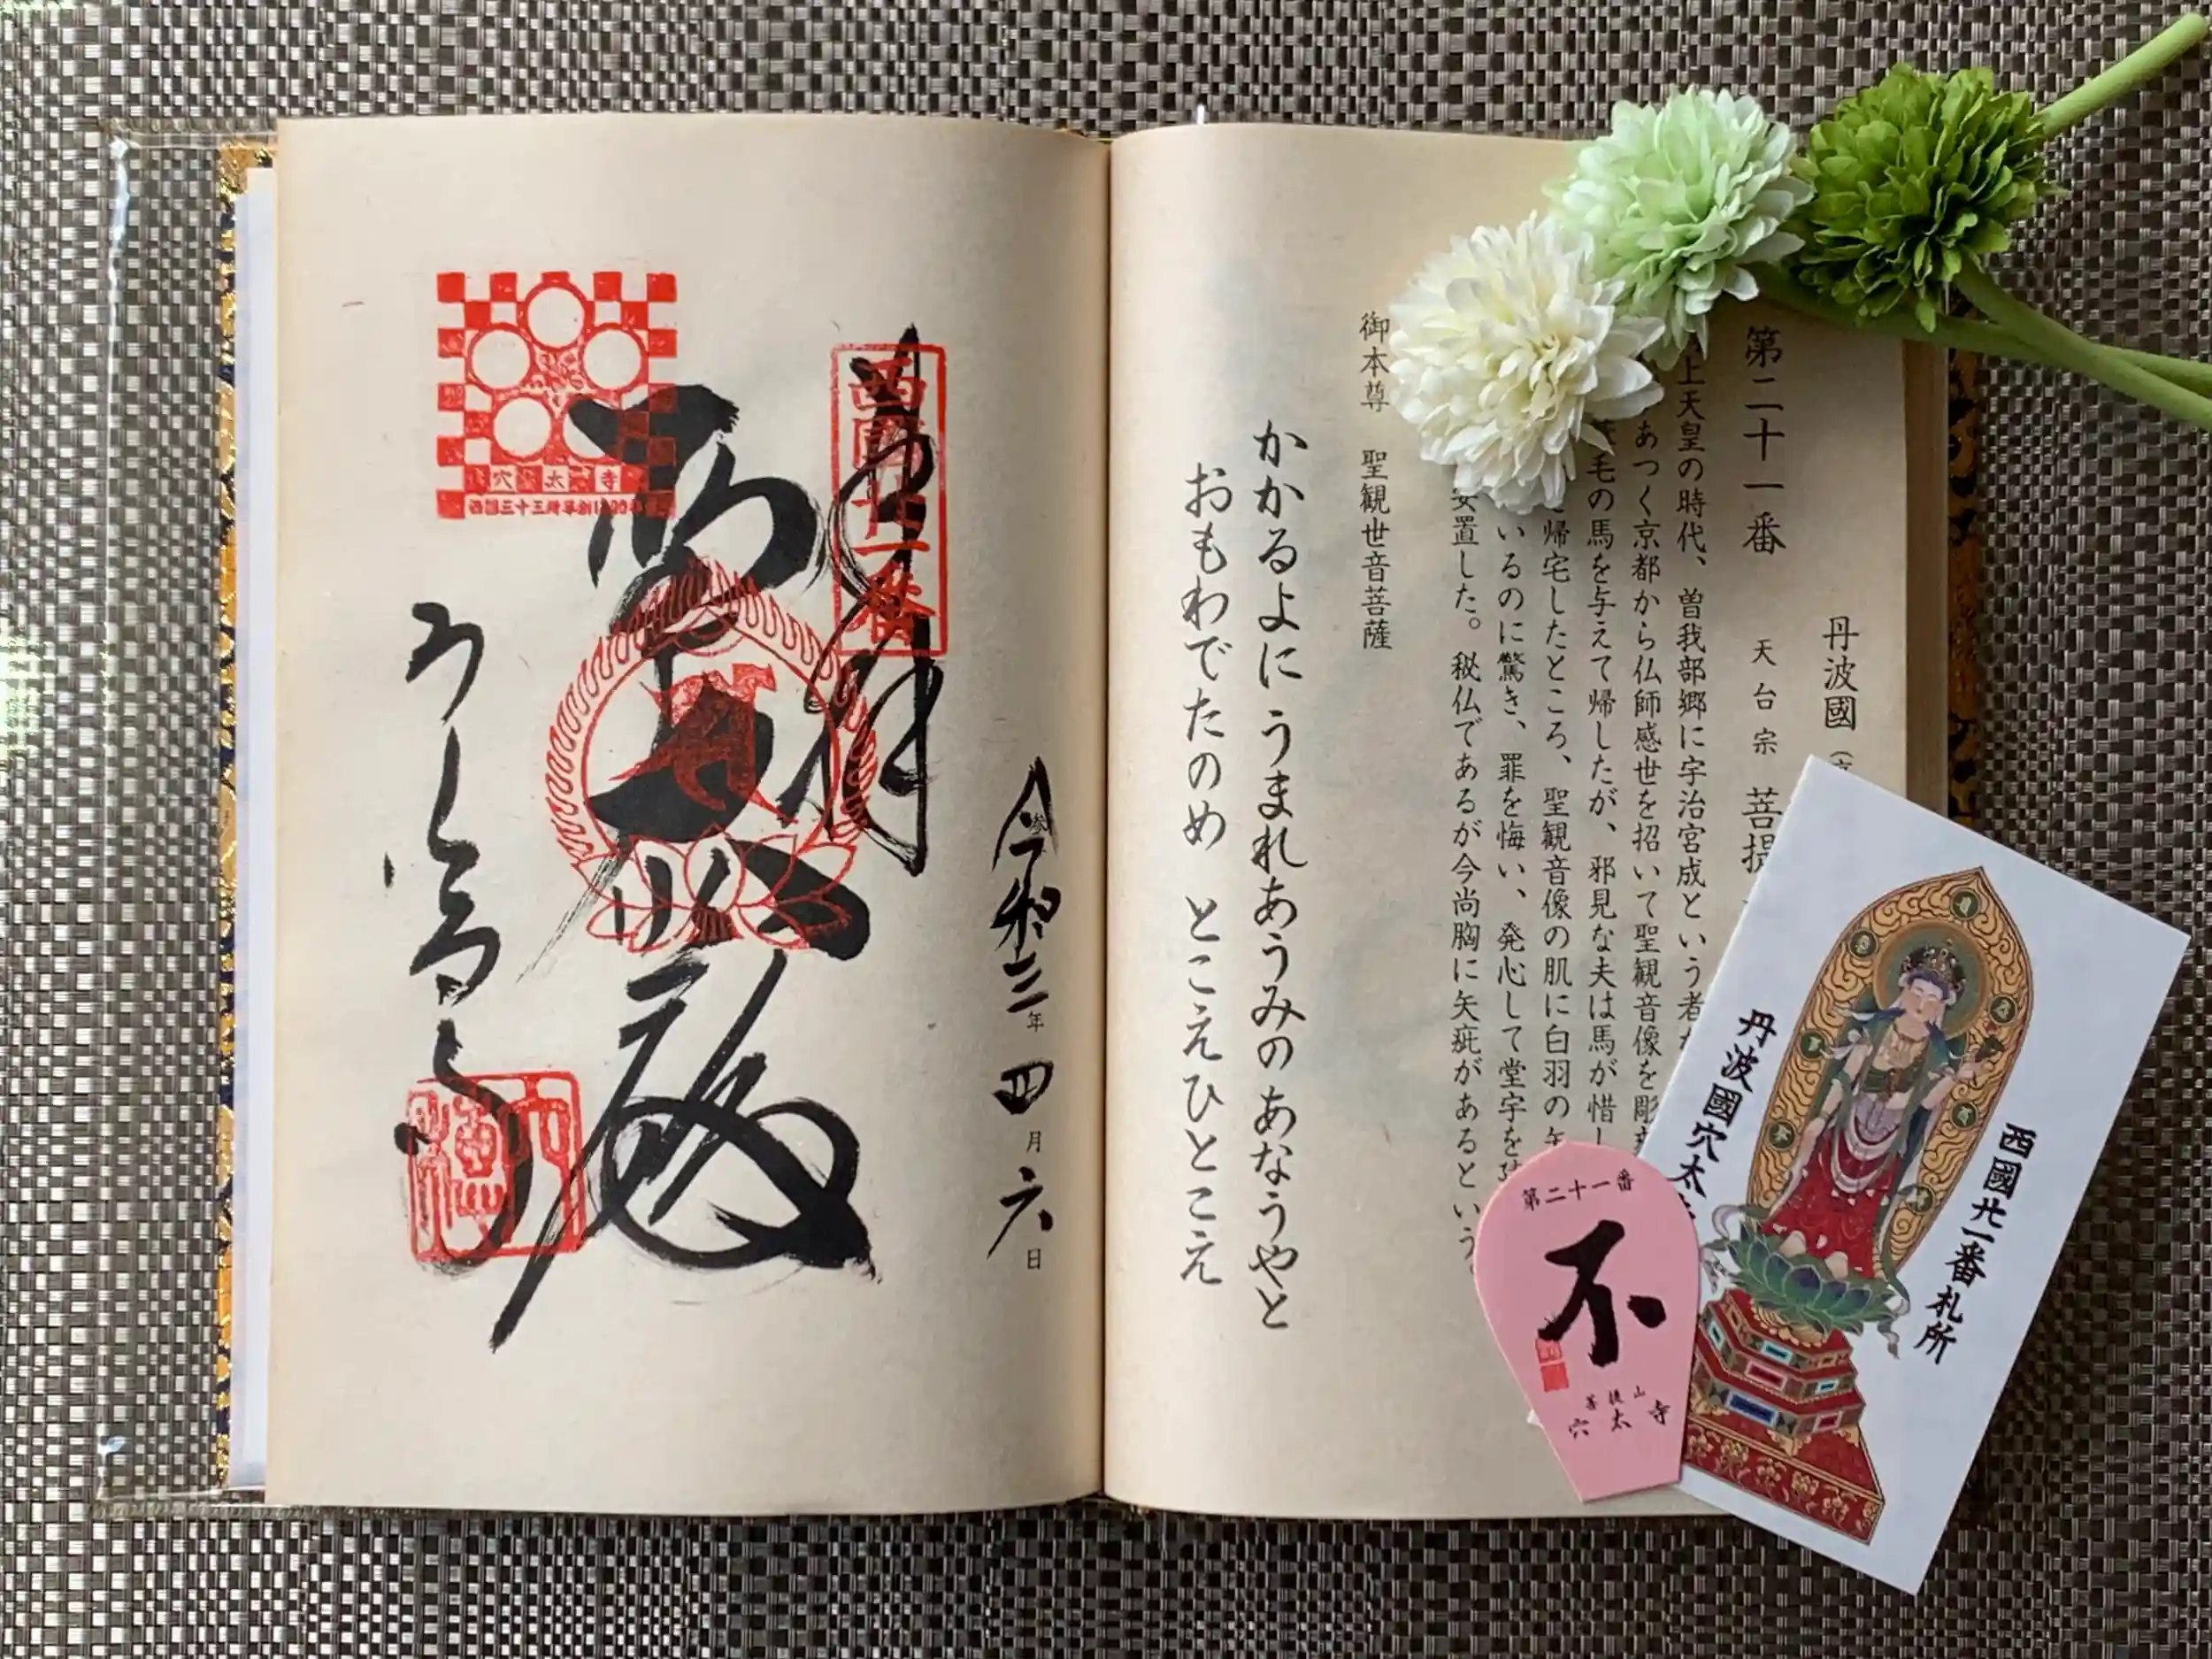 丹波國
第二十一番 天台宗 菩提
上天皇の時代、曽我部郷に宇治宮成という者
あつく京都から仏師感世を招いて聖観音像を彫
毛の馬を与えて帰したが、邪見な夫は馬が惜し
帰宅したところ、聖観音像の肌に白羽の矢
いるのに驚き、罪を悔い、発心して堂宇を
安置した。秘仏であるが今尚胸に矢疵があるという。
御本尊 聖観世音菩薩
かかるよに うまれあうみの あなうやと
おもわでたのめ とこえひとこえ
奉拝
参
令和三年四月六日
西国廿一番
聖大殿
あなう寺
穴太寺
西国三十三所草創1300年
西國廿一番札所
丹波國穴太
第二十一番
不
菩提山
穴太寺